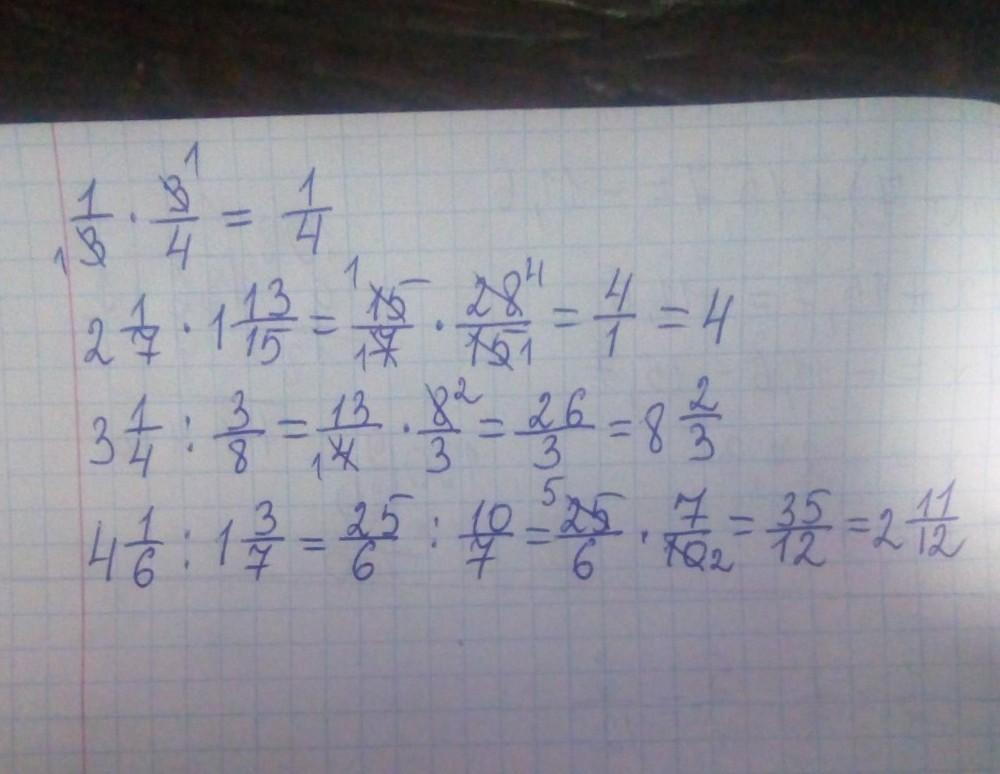 1/3 · 3/4 = 1/4
2 1/7 · 1 13/15 = 15/7 · 28/15 = 4/1 = 4
3 1/4 : 3/8 = 13/4 · 8/3 = 26/3 = 8 2/3
4 1/6 : 1 3/7 = 25/6 : 10/7 = 25/6 · 7/10 = 35/12 = 2 11/12